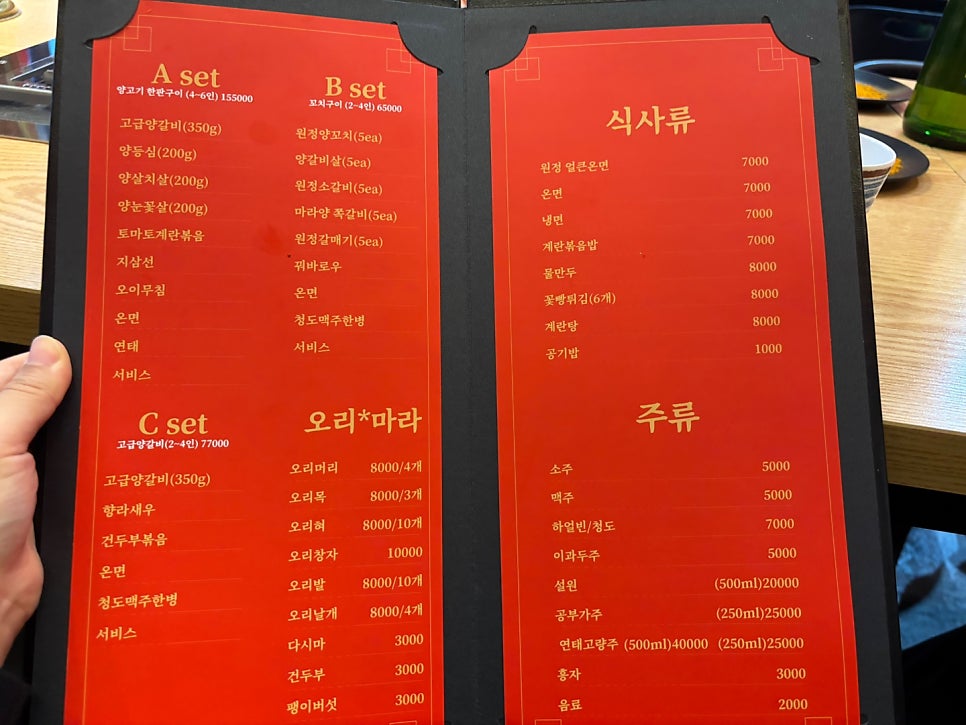 A set
양고기 한판구이 (4~6인) 155000
고급양갈비(350g)
양등심(200g)
양살치살(200g)
양눈꽃살(200g)
토마토계란볶음
지삼선
오이무침
온면
연태
서비스
B set
꼬치구이 (2~4인) 65000
원정양꼬치(5ea)
양갈비살(5ea)
원정소갈비(5ea)
마라양 쪽갈비(5ea)
원정갈매기(5ea)
꿔바로우
온면
청도맥주한병
서비스
C set
고급양갈비(2~4인) 77000
고급양갈비(350g)
향라새우
건두부볶음
온면
청도맥주한병
서비스
오리*마라
오리머리 8000/4개
오리목 8000/3개
오리혀 8000/10개
오리창자 10000
오리발 8000/10개
오리날개 8000/4개
다시마 3000
건두부 3000
팽이버섯 3000
식사류
원정 얼큰온면 7000
온면 7000
냉면 7000
계란볶음밥 7000
물만두 8000
꽃빵튀김(6개) 8000
계란탕 8000
공기밥 1000
주류
소주 5000
맥주 5000
하얼빈/청도 7000
이과두주 5000
설원 (500ml)20000
공부가주 (250ml)25000
연태고량주 (500ml)40000 (250ml)25000
흥자 3000
음료 2000